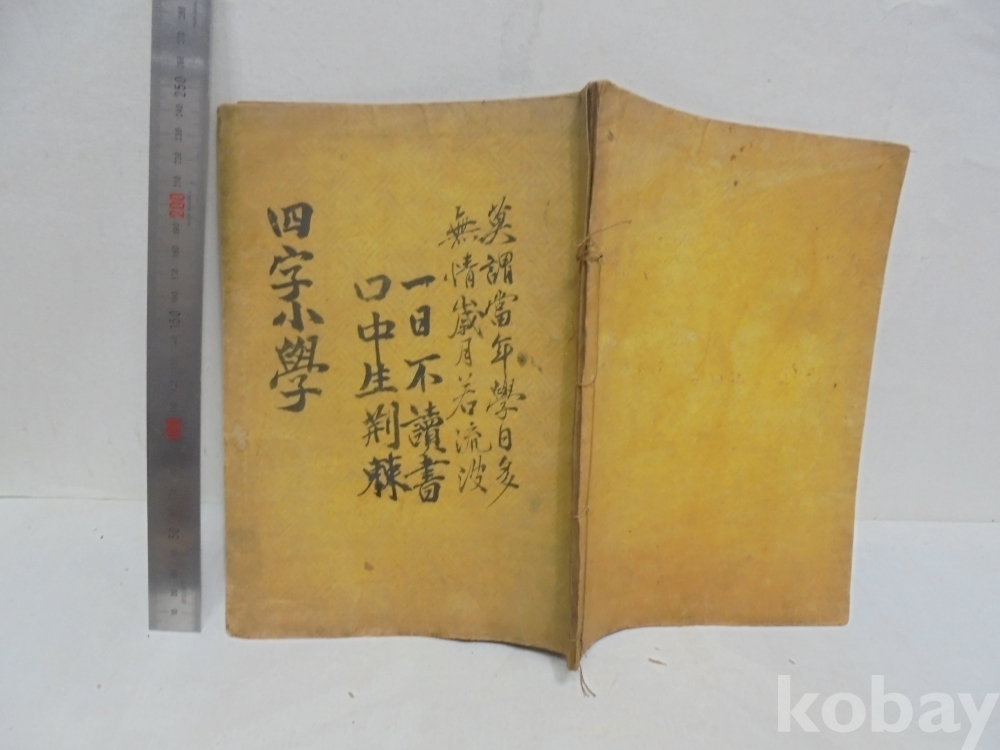 莫謂當年學日多
無情歲月若流波
一日不讀書
口中生荊棘
四字小學
250
200
150
kobay